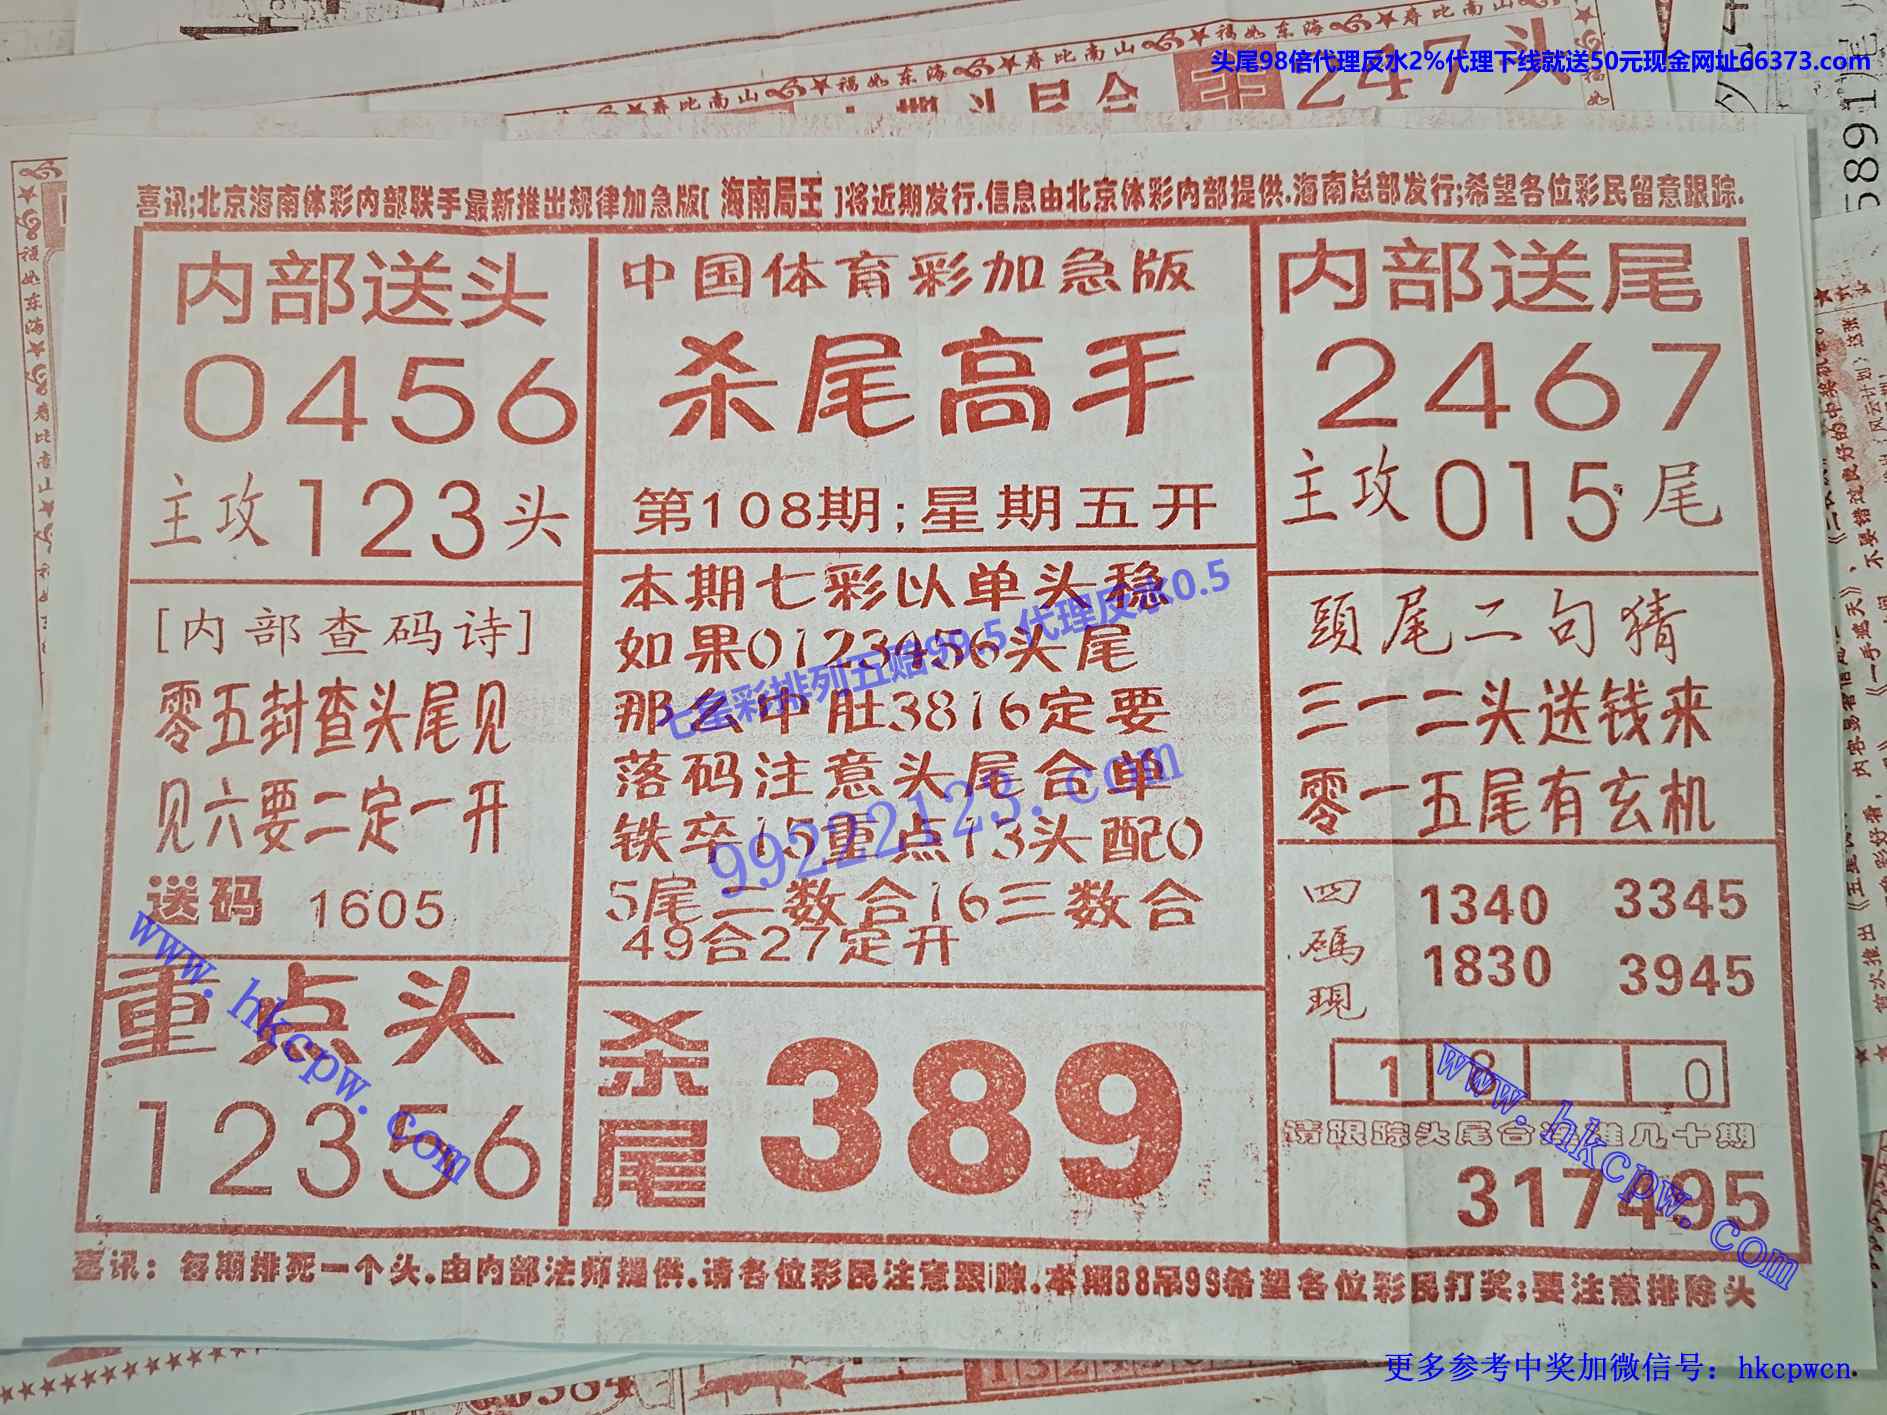 头尾98倍代理反水2%代理下线就送50元现金网址66373.com
寿比南山 福如东海 寿比南山 福如东海 寿比南山
247头
5891
喜讯;北京海南体彩内部联手最新推出规律加急版[海南局王]将近期发行.信息由北京体彩内部提供.海南总部发行;希望各位彩民留意跟踪.
内部送头
0456
主攻123头
中国体育彩加急版
杀尾高手
第108期;星期五开
内部送尾
2467
主攻015尾
[内部查码诗]
零五封查头尾见
见六要二定一开
送码 1605
本期七彩以单头稳
如果0123456头尾
那么中肚3816定要
落码注意头尾合单
铁卒15重点13头配0
5尾二数合16三数合
49合27定开
七星彩排列五赔99.5 代理反水0.5
99222123.com
頭尾二句猜
三一二头送钱来
零一五尾有玄机
四碼現
1340 3345
1830 3945
1 8 0
请跟踪头尾合 几十期
317495
重点头
12356
杀尾
389
www.hkcpw.com
www.hkcpw.com
喜讯: 每期排死一个头.由内部法师提供.请各位彩民注意跟踪.本期88吊99希望各位彩民打奖;要注意排除头
更多参考中奖加微信号: hkcpwcn